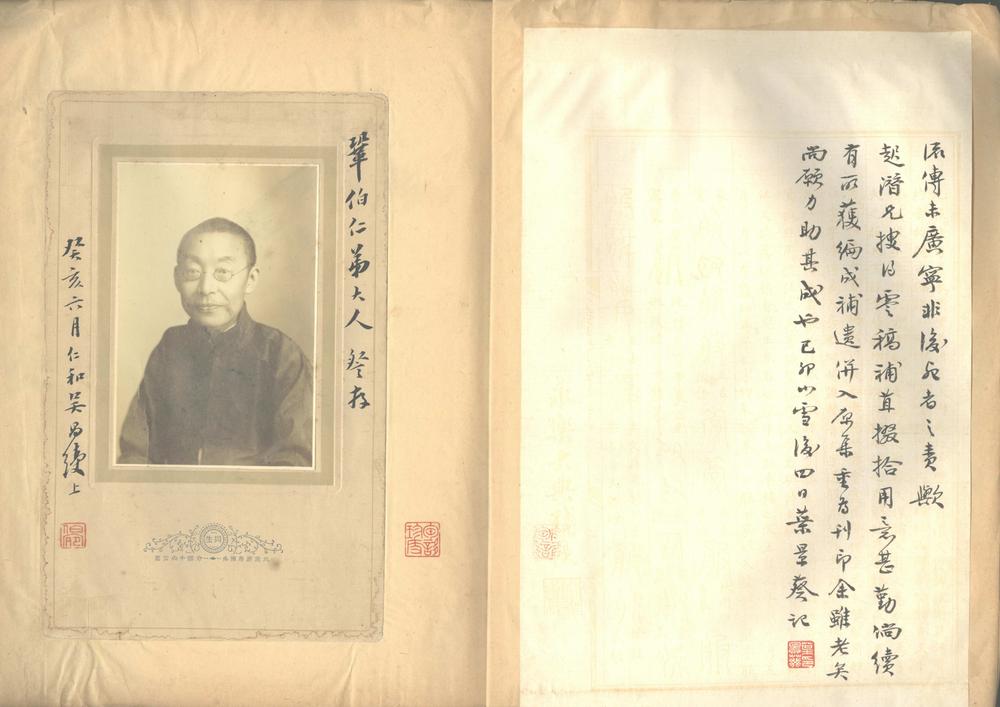 流傳未廣寧非後死者之責歟
起潛兄搜得零稿補苴掇拾用意甚勤倘續
有所獲編成補遺併入原集重為刊印余雖老矣
尚願力助其成也己卯小雪後四日葉景葵記
鞏伯仁弟大人 詧存
癸亥六月仁和吳昌綬上
同生